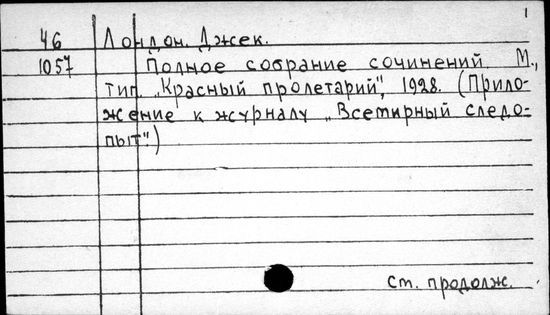 1
46 Лондон, Джек.
1057 Полное собрание сочинений. М.,
тип. „Красный пролетарий", 1928. (Прило-
жение к журналу „Всемирный следо-
пыт".)
ст. продолж.